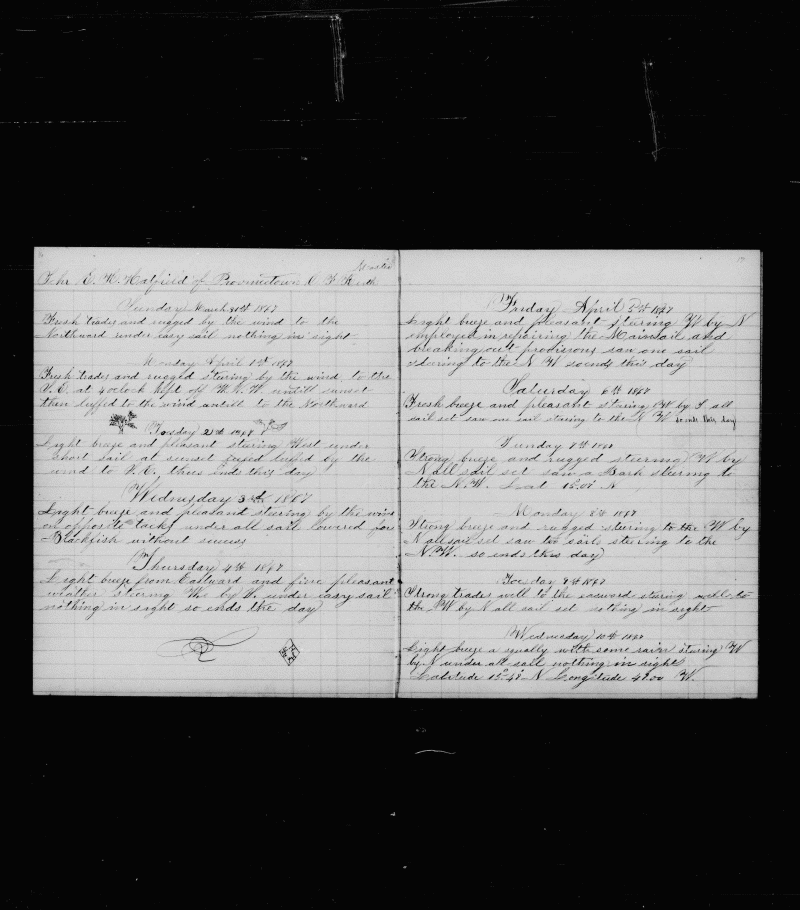 Master
Schr E. H. Hatfield of Provincetown
Sunday March 31st 1867
Fresh trades and rugged by the wind to the
Northward under easy sail nothing in sight
Monday April 1st 1867
Fresh trades and rugged sturing by the wind to the
at 4 oclock kept off untill sunset
then luffed to the wind untill to the Northward
Tuesday 2nd 1867
Light breze and pleasant sturing West under
short sail at sunset luffed by the
wind to thus ends this day
Wednesday 3rd 1867
Light breeze and pleasant steering by the wind
on opposite tacks under all sail lowered for
Blackfish without sucess
Thursday 4th 1867
Light breze from Eastward and fine pleasant
weather stering W by under easy sail
nothing in sight so ends the day
17
Friday April 5th 1867
Light breeze and pleasant sturing W by N
imployed in repairing the Mainsail and
breaking out provisions saw one sail
staring to the N W so ends this day
Saturday 6th 1867
Fresh breeze and pleasant sturing W by all
sail set saw one sail sturing to the N W so ends this day
Sunday 7th 1867
Strong breeze and rugged steering W by
N all sail set saw a Bark stering to
the N.W. Lat 15.07 N
Monday 8th 1867
Strong breeze and rugged sturing to the W by
N all sail set saw two sails steering to the
N.W. so ends this day
Tuesday 9th 1867
Strong trades well to the easward sturing well to
the W by N all sail set nothing in sight
Wednesday 10th 1867
Light breeze a squally with some rain sturing W
by N under all sail nothing in sight
Latitude 15°48' N Longitude 49.00 W.